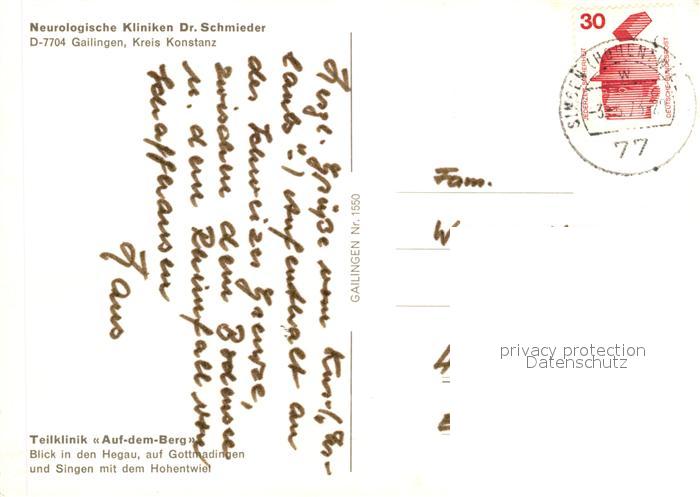 Neurologische Kliniken Dr. Schmieder
D-7704 Gailingen, Kreis Konstanz
Herzl. Grüße vom Kur-(„Ur-
laubs“-) Aufenthalt an
der Schweizer Grenze,
zwischen dem Bodensee
u. dem Rheinfall von
Schaffhausen
Hans
Teilklinik «Auf-dem-Berg»
Blick in den Hegau, auf Gottmadingen
und Singen mit dem Hohentwiel
GAILINGEN Nr. 1550
30
JEDERZEIT SICHERHEIT
DEUTSCHE BUNDESPOST
SINGEN (HOHENTWIEL)
77
Fam.
W
privacy protection
Datenschutz